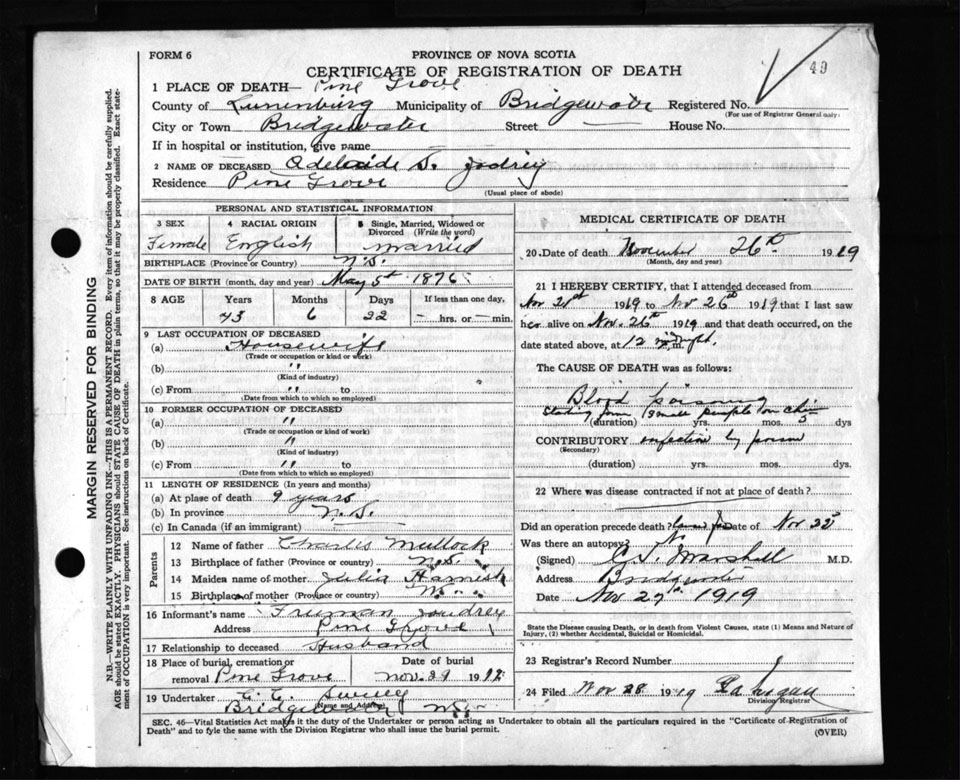 FORM 6
PROVINCE OF NOVA SCOTIA
49
CERTIFICATE OF REGISTRATION OF DEATH
1 PLACE OF DEATH— Pine Grove
County of Lunenburg Municipality of Bridgewater Registered No.
(For use of Registrar General only)
City or Town Bridgewater Street — House No.
If in hospital or institution, give name
2 NAME OF DECEASED Adelaide S. Jodrey
Residence Pine Grove
(Usual place of abode)
PERSONAL AND STATISTICAL INFORMATION
3 SEX Female
4 RACIAL ORIGIN English
5 Single, Married, Widowed or Divorced (Write the word) married
BIRTHPLACE (Province or Country) N.S.
DATE OF BIRTH (month, day and year) May 5th 1876
8 AGE Years Months Days If less than one day,
43 6 22 — hrs. or — min.
9 LAST OCCUPATION OF DECEASED
(a) Housewife
(Trade or occupation or kind or work)
(b) "
(Kind of industry)
(c) From " to
(Date from which to which so employed)
10 FORMER OCCUPATION OF DECEASED
(a) "
(Trade or occupation or kind of work)
(b) "
(Kind of industry)
(c) From " to
(Date from which to which so employed)
11 LENGTH OF RESIDENCE (In years and months)
(a) At plase of death 9 years
(b) In province N.S.
(c) In Canada (if an immigrant)
Parents
12 Name of father Charles Mullock
13 Birthplace of father (Province or country) N.S.
14 Maiden name of mother Julia Harnish
15 Birthplace of mother (Province or country)
16 Informant's name Freeman Joudrey
Address Pine Grove
17 Relationship to deceased Husband
18 Place of burial, cremation or removal Pine Grove
Date of burial Nov. 29 191
19 Undertaker
Bridgewater N.S.
Name and Address
MEDICAL CERTIFICATE OF DEATH
20 Date of death November 26th 1919
(Month, day and year)
21 I HEREBY CERTIFY, that I attended deceased from
Nov 21st 1919 to Nov 26th 1919 that I last saw
her alive on Nov. 26th 1919 and that death occurred, on the
date stated above, at 12 midnight m.
The CAUSE OF DEATH was as follows:
Blood poisoning
Starting from small pimple on chin
(duration) yrs. mos. 5 dys
CONTRIBUTORY infection by
(Secondary)
(duration) yrs. mos. dys.
22 Where was disease contracted if not at place of death?
Did an operation precede death? Date of Nov 22
Was there an autopsy? No
(Signed) Marshall M.D.
Address Bridgewater
Date Nov 27th 1919
State the Disease causing Death, or in death from Violent Causes, state (1) Means and Nature of
Injury, (2) whether Accidental, Suicidal or Homicidal.
23 Registrar's Record Number
24 Filed Nov 28 1919
Division Registrar
SEC. 46—Vital Statistics Act makes it the duty of the Undertaker or person acting as Undertaker to obtain all the particulars required in the "Certificate of Registration of
Death" and to fyle the same with the Division Registrar who shall issue the burial permit.
(OVER)
MARGIN RESERVED FOR BINDING
N.B.—WRITE PLAINLY WITH UNFADING INK—THIS IS A PERMANENT RECORD. Every item of information should be carefully supplied.
AGE should be stated EXACTLY. PHYSICIANS should STATE CAUSE OF DEATH in plain terms, so that it may be properly classified. Exact state-
ment of OCCUPATION is very important. See instructions on back of Certificate.